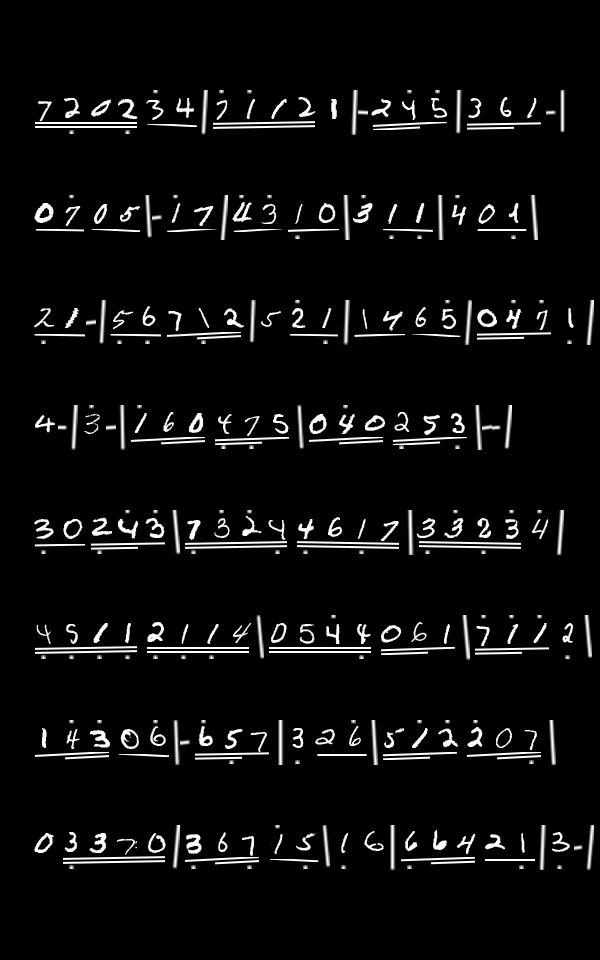 7202 34|71121|-245|361-|
0705|-17|4310|311|401|
21-|56712|521|1465|0471|
4-|3-|160475|040253|--|
30243|7324 4617|33234|
4511 2114|0544061|7112|
14306|-657|326|512207|
03370|36715|16|66421|3-|